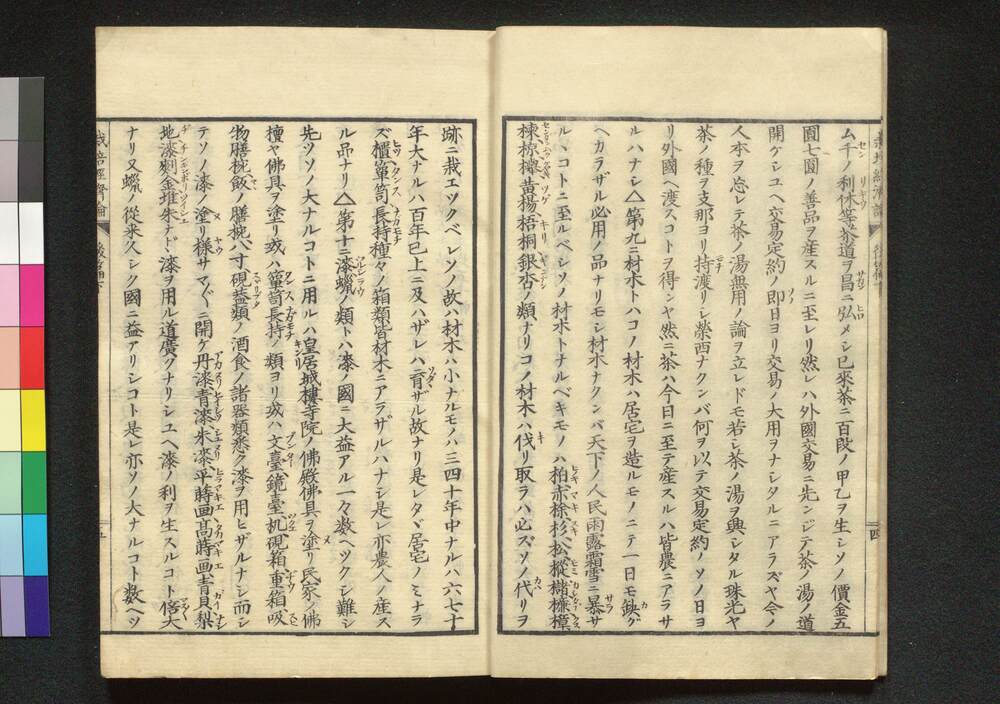 ム千ノ利休等茶道ヲ昌ニ弘メシ已來茶ニ百段ノ甲乙ヲ生シソノ價金五
圓七圓ノ善品ヲ産スルニ至レリ然レハ外國交易ニ先ンジテ茶ノ湯ノ道
開ケシユヘ交易定約ノ即日ヨリ交易ノ大用ヲナシタルニアラズヤ今ノ
人本ヲ忘レテ茶ノ湯無用ノ論ヲ立レドモ若シ茶ノ湯ヲ興シタル珠光ヤ
茶ノ種ヲ支那ヨリ持渡リシ榮西ナクンバ何ヲ以テ交易定約ノソノ日ヨ
リ外國ヘ渡スコトヲ得ンヤ然ニ茶ハ今日ニ至テ産スルハ皆農ニアラサ
ルハナシ△第九ニ材木トハコノ材木ハ居宅ヲ造ルモノニテ一日モ鈌グ
ヘカラザル必用ノ品ナリモシ材木ナクンバ天下ノ人民雨露霜雪ニ暴サ
ルヽコトニ至ルベシソノ材木トナルベキモノハ柏赤檜杉松樅櫧槺樟
楝椋櫸黄楊梧桐銀杏ノ類ナリコノ材木ハ伐リ取ラハ必ズソノ代リヲ
跡ニ栽エツクベシソノ故ハ材木ハ小ナルモノハ三四十年中ナルハ六七十
年大ナルハ百年已上ニ及ハザレハ育ザル故ナリ是レタヾ居宅ノミナラ
ズ櫃簞笥長持種々ノ箱類皆材木ニアラザルハナシ是レ亦農人ノ産ス
ル品ナリ△第十ニ漆蠟ノ類トハ漆ノ國ニ大益アル一々数ヘツクシ難シ
先ツソノ大ナルコトニ用ルハ皇居城樓寺院ノ佛殿佛具ヲ塗リ民家ノ佛
檀ヤ佛具ヲ塗リ或ハ簞笥長持ノ類ヨリ或ハ文臺鏡臺机硯箱重箱吸
物膳椀飯ノ膳椀八寸硯蓋類ノ酒食ノ諸器類悉ク漆ヲ用ヒザルナシ而シ
テソノ漆ノ塗リ様サマ〴〵ニ開ケ丹漆青漆朱漆平蒔画髙蒔画青貝梨
地漆剔金堆朱ナド漆ヲ用ル道廣クナリシユヘ漆ノ利ヲ生スルコト倍大
ナリ又蠟ノ從来久シク國ニ益アリシコト是レ亦ソノ大ナルコト数ヘツ